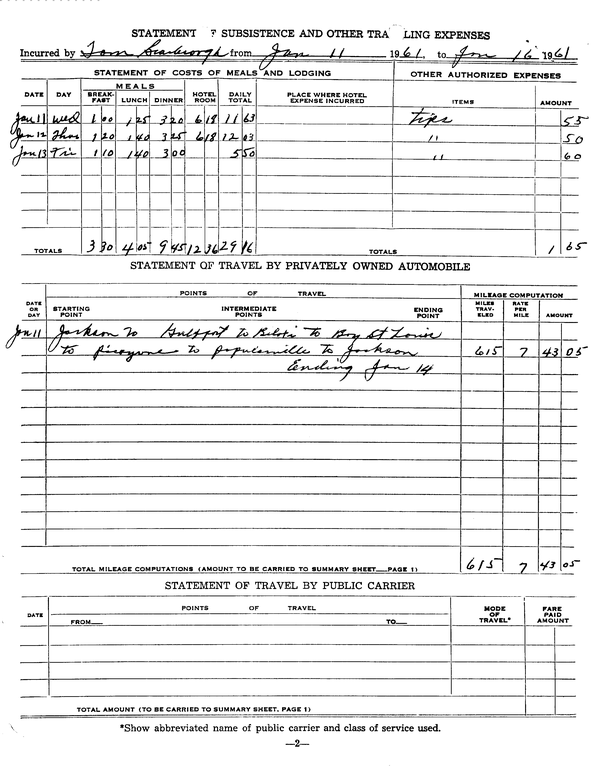 STATEMENT F SUBSISTENCE AND OTHER TRA LING EXPENSES
Incurred by Tom Scarbrough from Jan 11 1961, to Jan 16 1961
STATEMENT OF COSTS OF MEALS AND LODGING OTHER AUTHORIZED EXPENSES
MEALS
DATE DAY BREAK-FAST LUNCH DINNER HOTEL ROOM DAILY TOTAL PLACE WHERE HOTEL EXPENSE INCURRED ITEMS AMOUNT
Jan 11 Wed 1 00 1 25 3 20 6 18 11 63 tips 55
Jan 12 Thus 1 20 1 40 3 25 6 18 12 03 " 50
Jan 13 Fri 1 10 1 40 3 00 5 50 " 60
TOTALS 3 30 4 05 9 45 12 36 29 16 TOTALS 1 65
STATEMENT OF TRAVEL BY PRIVATELY OWNED AUTOMOBILE
POINTS OF TRAVEL MILEAGE COMPUTATION
DATE OR DAY STARTING POINT INTERMEDIATE POINTS ENDING POINT MILES TRAV-ELED RATE PER MILE AMOUNT
Jan 11 Jackson to Gulfport to Biloxi to Bay St Louis
to picayune to poplarville to Jackson 615 7 43 05
Ending Jan 14
TOTAL MILEAGE COMPUTATIONS (AMOUNT TO BE CARRIED TO SUMMARY SHEET__PAGE 1) 615 7 43 05
STATEMENT OF TRAVEL BY PUBLIC CARRIER
DATE POINTS OF TRAVEL MODE OF TRAVEL* FARE PAID AMOUNT
FROM__ TO__
TOTAL AMOUNT (TO BE CARRIED TO SUMMARY SHEET, PAGE 1)
*Show abbreviated name of public carrier and class of service used.
—2—